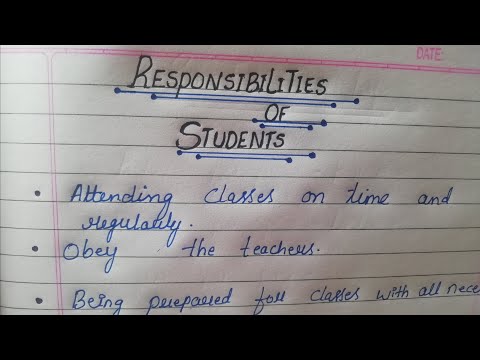 DATE:
RESPONSIBILITIES
OF
STUDENTS
• Attending classes on time and
regularly.
• Obey the teachers.
• Being prepared for classes with all nece